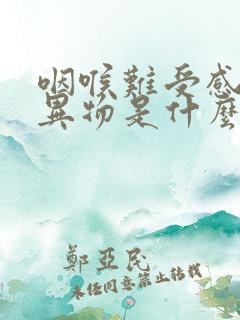 咽喉難受感
異物是什麼
鄭亞民
未經同意禁止轉載